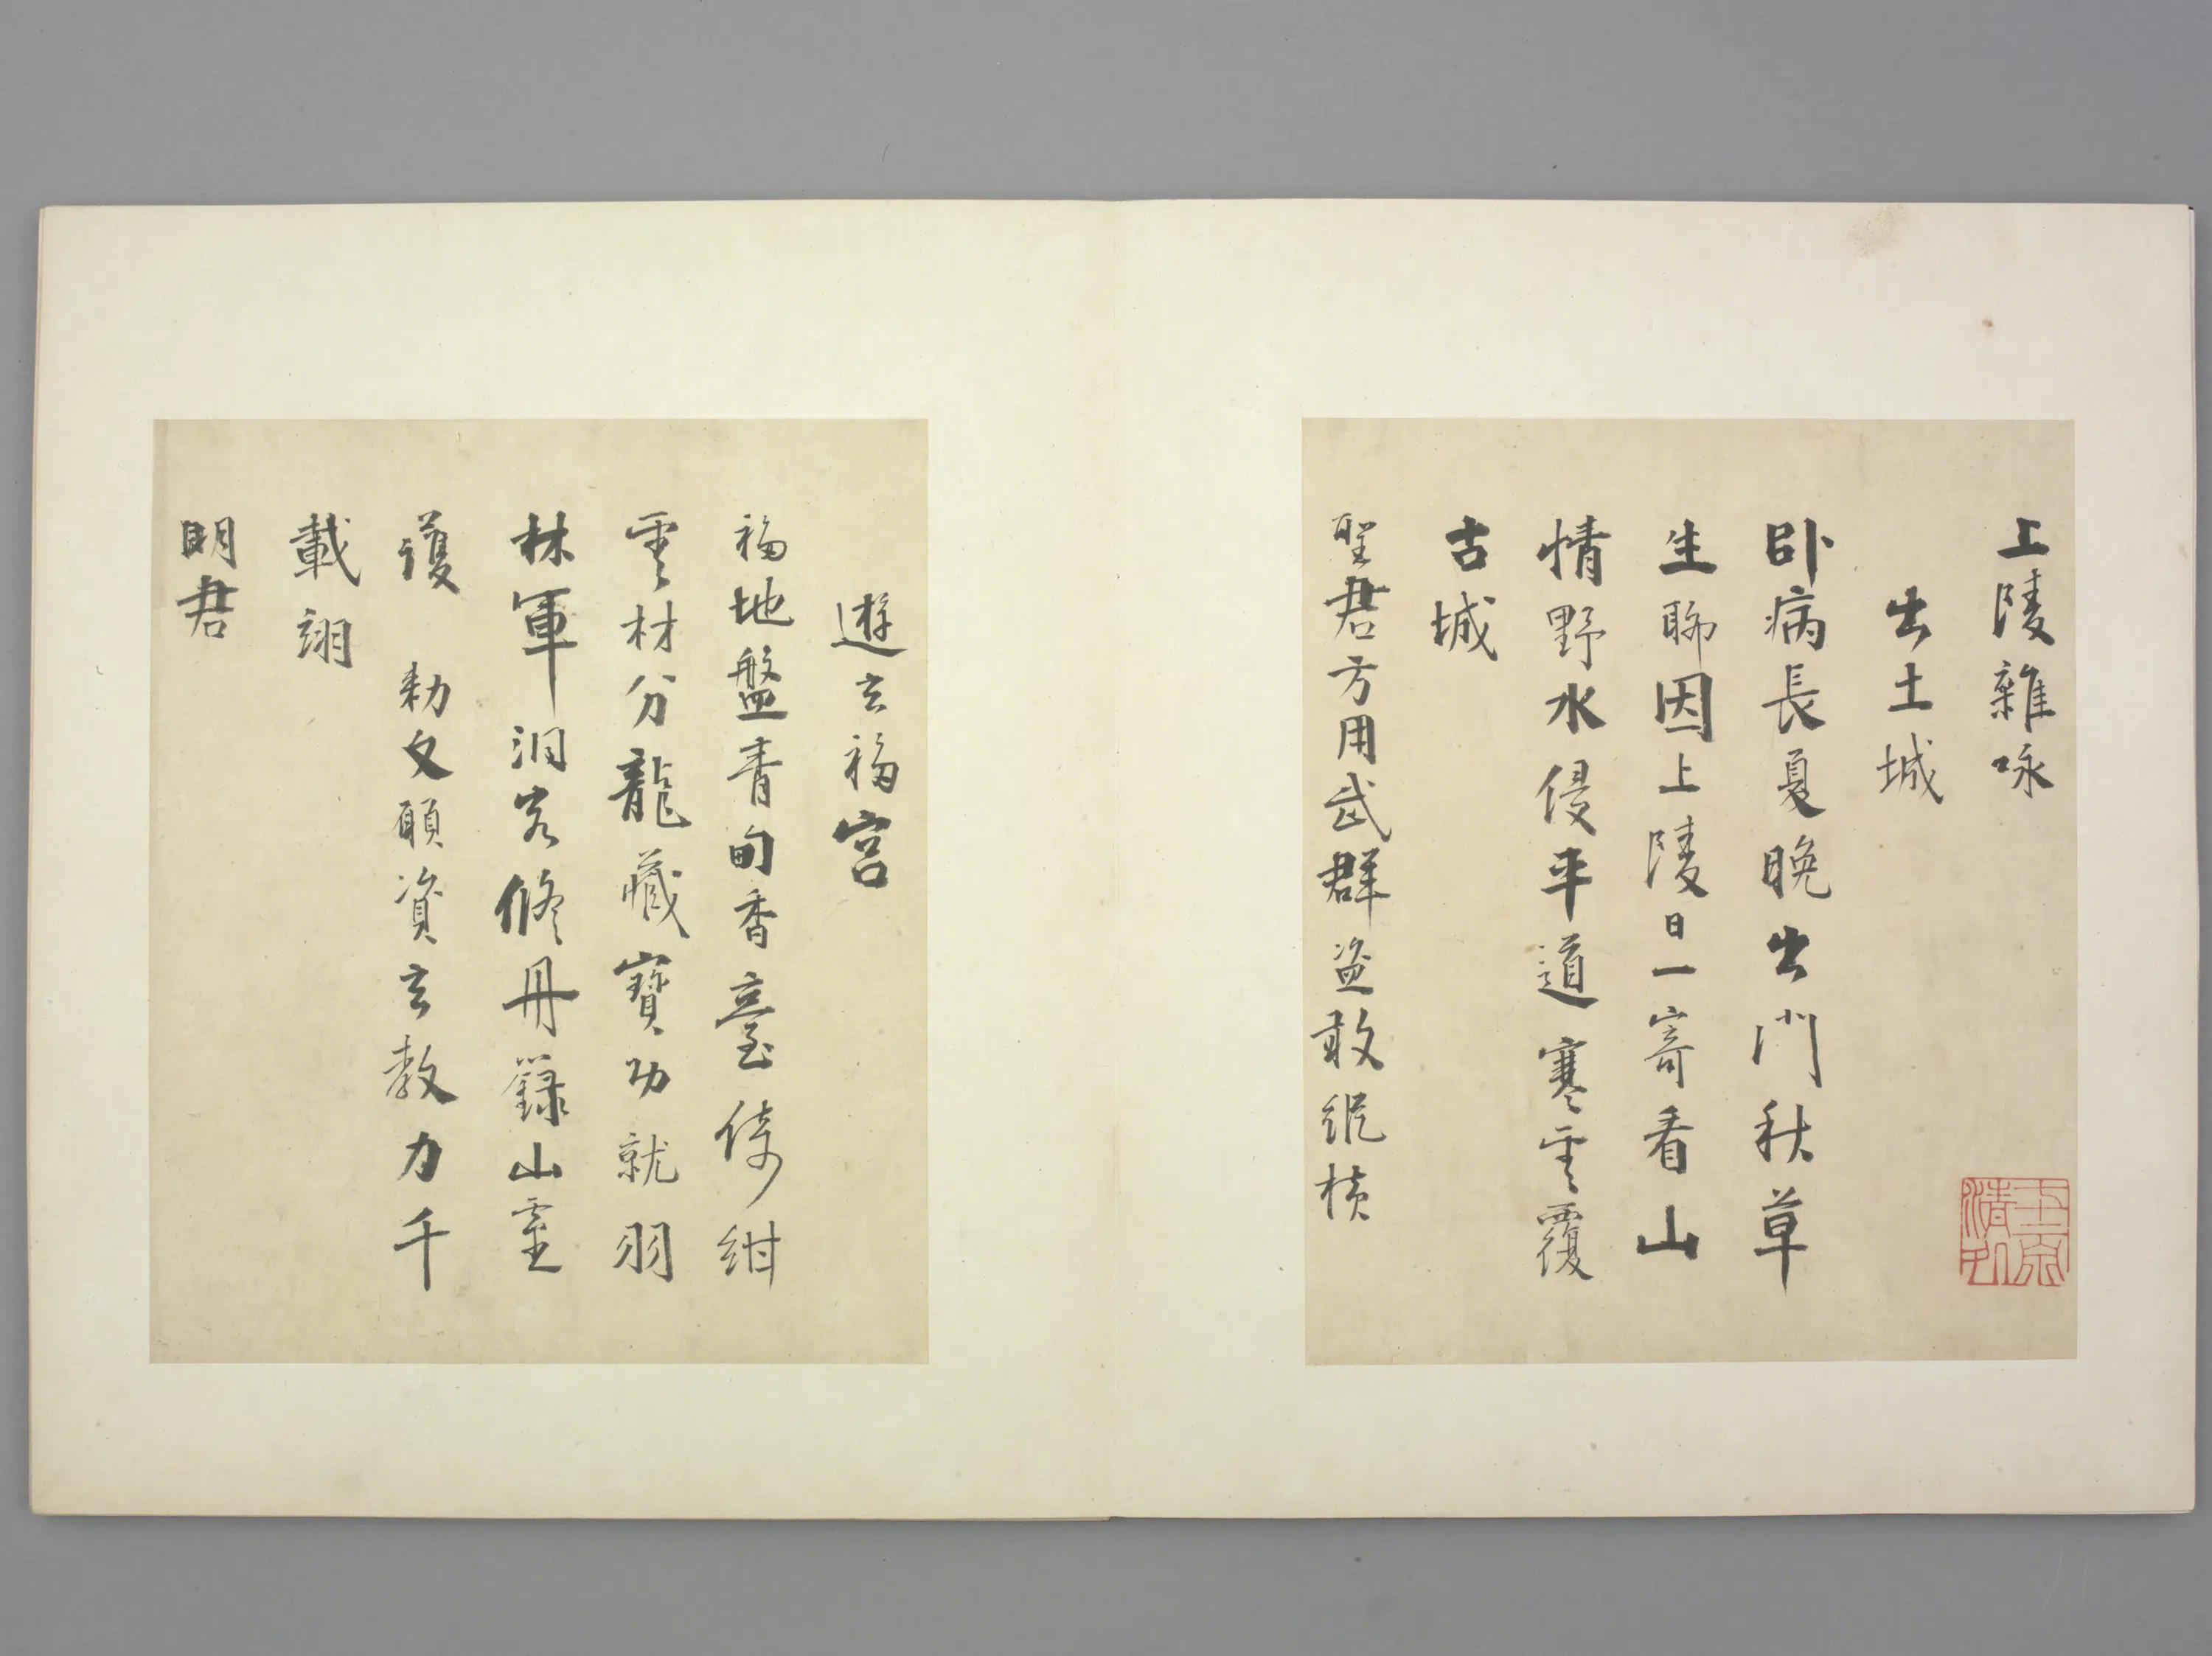 上陵雜咏
出土城
卧病長夏晚出門秋草
生聊因上陵日一寄看山
情野水侵平道寒雲覆
古城
聖君方用武群盜敢縱横
遊玄福宮
福地盤青甸香臺倚紺
雲材分龍藏寶功就羽
林軍洞客修丹籙山靈
護勅文願資玄教力千
載翊
明君